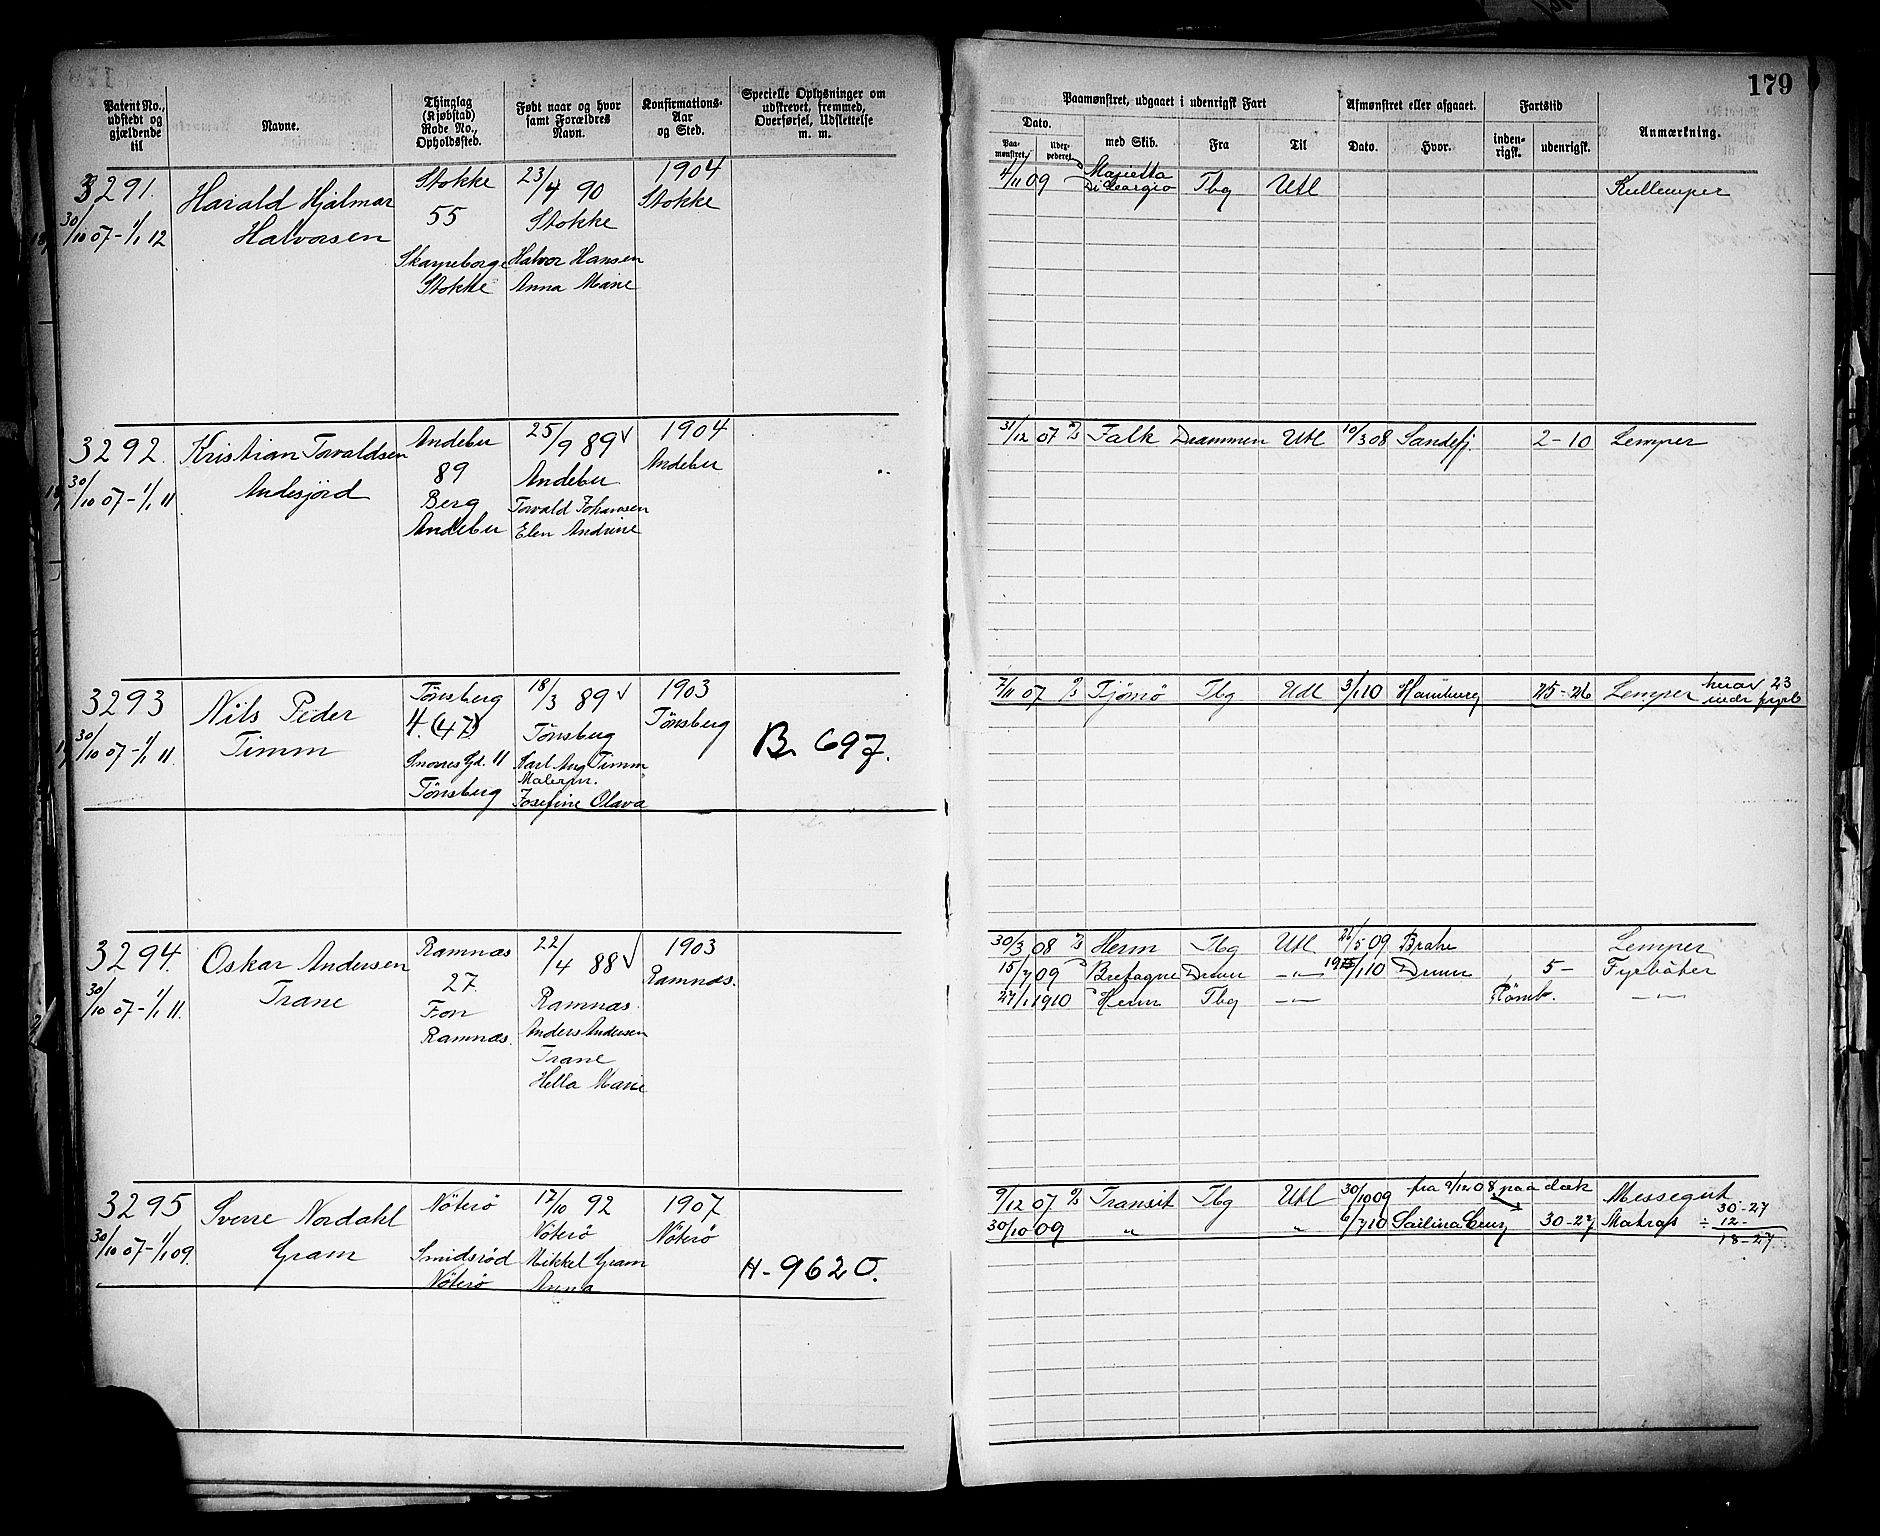 179
Patent No., udstedt og gjældende til
Navne.
Thinglag (Kjøbstad) Rode No., Opholdssted.
Født naar og hvor samt Forældres Navn.
Konfirmations-Aar og Sted.
Specielle Oplysninger om udskrevet, fremmed, Overførsel, Udslettelse m. m.
Paamønstret, udgaaet i udenrigsk Fart
Afmønstret eller afgaaet.
Fartstid
Anmærkning.
Dato.
Paa-mønstret.
med Skib.
Fra
Til
Dato.
Hvor.
inden-rigsk.
udenrigsk.
3291.
30/10 07-1/1 12
Harald Hjalmar
Halvorsen
Stokke
55
Stokke
23/4 90
Stokke
Halvor Hansen
Anna Marie
1904
Stokke
4/11 09 Marietta
Di Georgio Tbg Utl Kullemper
3292.
30/10 07-1/1 11
Kristian Torvaldsen
Andebu
89
Berg
Andebu
25/9 89
Andebu
Torvald Johansen
Elen Andrine
1904
Andebu
31/12 07 Falk Drammen Utl 10/3 08 Sandefj. 2-10 Lemper
3293
30/10 07-1/1 11.
Nils Peder
Timm
Tønsberg
4. (47)
Snorres Gd. 11
Tønsberg
18/3 89
Tønsberg
Karl Aug Timm
Josefine Olava
1903
Tønsberg
B. 697.
7/11 07 Tjømø Tbg Utl 3/1 10 Hamburg 25-26 Lemper hvav 23
3294.
30/10 07-1/1 11.
Oskar Andersen
Trane
Ramnæs
27.
Fon
Ramnæs.
22/4 88
Ramnæs.
Anders Andersen
Trane
Hella Marie
1903
Ramnæs.
30/3 08 Herm Tbg Utl 26/5 09 Brake Lemper
15/7 09 Bretagne Drmn -"- 1/1 10 Drmn 5- Fyrbøter
27/1 1910 Herm Tbg -"- Rømt. -"-
3295
30/10 07-1/1 09.
Sverre Nordahl
Gram
Nøterø
Smidsrød
Nøterø
17/10 92
Nøterø
Mikkel Gram
Anna
1907
Nøterø
H-9620.
9/12 07 Transit Tbg Utl 30/10 09 fra 9/12 08 paa dæk Messegut
30/10 09 " " 6/7 10 Salina Cruz 30-27 Matros
30-27
÷ 12-
18-27